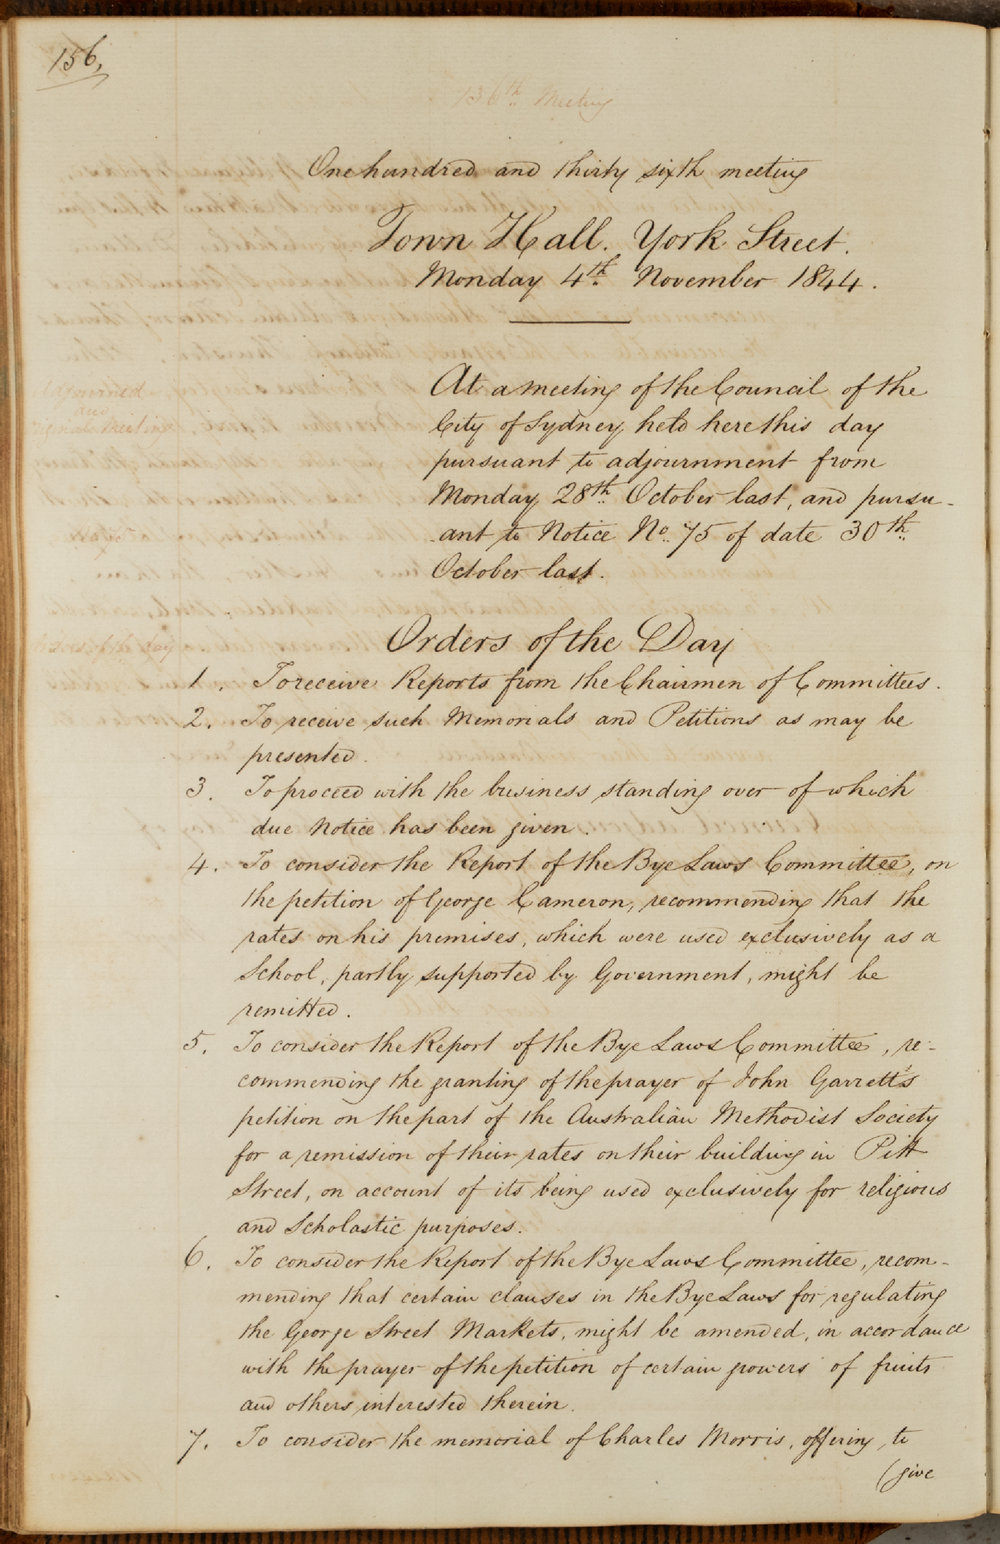 156,
136th Meeting
One hundred and thirty sixth meeting
Town Hall. York Street.
Monday 4th November 1844.
At a meeting of the Council of the
City of Sydney held here this day
pursuant to adjournment from
Monday 28th October last, and pursu-
ant to Notice No. 75 of date 30th
October last.
Orders of the Day
Orders of the day
1. To receive Reports from the Chairmen of Committees.
2. To receive such Memorials and Petitions as may be
presented.
3. To proceed with the business standing over of which
due Notice has been given.
4. To consider the Report of the Bye Laws Committee, on
the petition of George Cameron, recommending that the
rates on his premises, which were used exclusively as a
School, partly supported by Government, might be
remitted.
5. To consider the Report of the Bye Laws Committee, re-
commending the granting of the prayer of John Garrett's
petition on the part of the Australian Methodist Society
for a remission of their rates on their building in Pitt
Street, on account of its being used exclusively for religious
and Scholastic purposes.
6. To consider the Report of the Bye Laws Committee, recom-
mending that certain clauses in the Bye Laws for regulating
the George Street Markets, might be amended, in accordance
with the prayer of the petition of certain growers of fruits
and others interested therein.
7. To consider the memorial of Charles Morris, offering to
(give